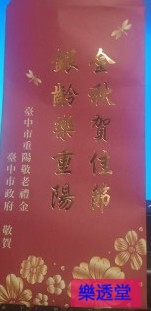 金秋賀佳節
銀齡樂重陽
臺中市重陽敬老禮金
臺中市政府 敬賀
樂透堂